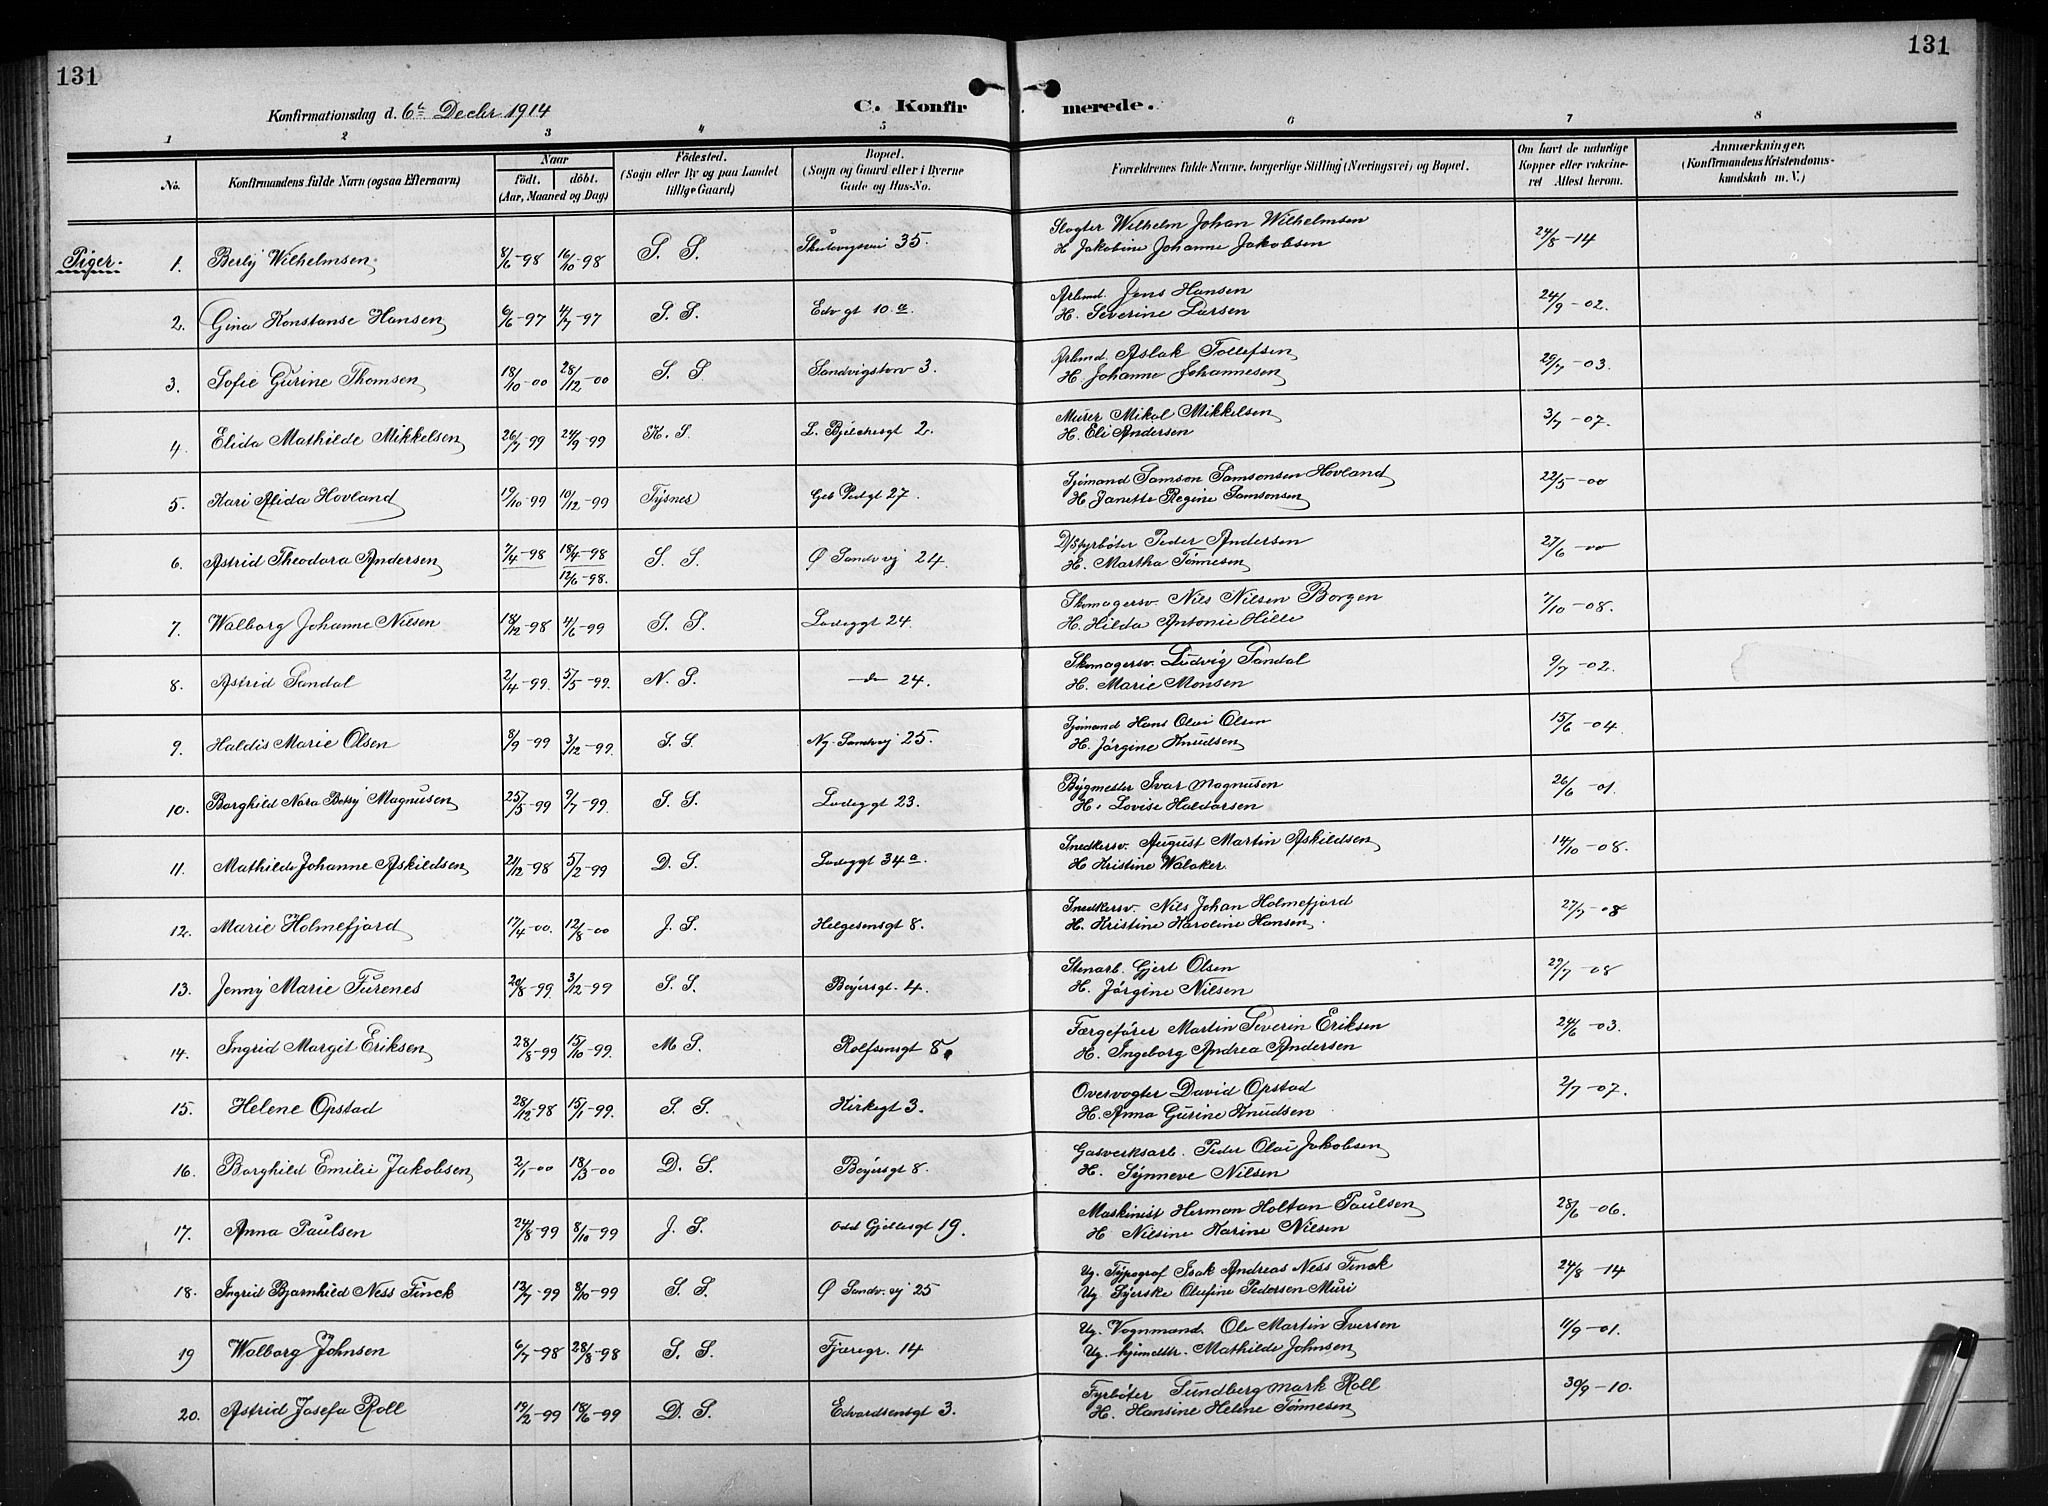 131
131
Konfirmationsdag d. 6te Decbr 1914
C. Konfir merede.
1 2 3 4 5 6 7 8
No. Konfirmandens fulde Navn (ogsaa Efternavn) Naar födt. döbt. (Aar, Maaned og Dag) Födested. (Sogn eller By og paa Landet tillige Gaard) Bopæl. (Sogn og Gaard eller i Byerne Gade og Hus-No. Forældrenes fulde Navne, borgerlige Stilling (Næringsvei) og Bopæl. Om havt de naturlige Kopper eller vakcineret Attest herom. Anmærkninger. (Konfirmandens Kristendomskundskab m. V.)
Piger.
1. Berly Wilhelmsen 8/6-98 16/10-98 S. S. Skutevigsvei 35. Slogter Wilhelm Johan Wilhelmsen 24/8-14
H. Jakobine Johanne Jakobsen
2. Gina Konstanse Hansen 6/6-97 4/7-97 S. S. Edv gt 10 a. Arbmd. Jens Hansen 24/9-02.
H. Severine Larsen
3. Sofie Gurine Thomsen 18/10-00 28/12-00 S. S. Sandvigstorv 3. Arbmd. Aslak Tollefsen 29/7-03.
H. Johanne Johannesen
4. Elida Mathilde Mikkelsen 26/7-99 24/9-99 K. S. L. Bjelchesgt 2. Murer Mikal Mikkelsen 3/7-07.
H. Eli Andersen
5. Kari Alida Hovland 19/10-99 10/12-99 Tysnes Geb Pedgt 27. Sjömand Samson Samsonsen Hovland 22/5-00
H. Janette Regine Samsonsen
6. Astrid Theodora Andersen 7/4-98 18/4-98 12/6-98. S. S. Ø Sandvvj 24. D/S fyrböter Peder Andersen 27/6-00
H. Martha Tönnesen
7. Walborg Johanne Nilsen 18/12-98 4/6-99 S. S. Ladeggt 24. Skomagersv. Nils Nilsen Borgen 7/10-08.
H. Hilda Antonie Hille
8. Astrid Sandal 2/4-99. 5/5-99. N. S. do 24. Skomagersv. Ludvig Sandal 9/7-02.
H. Marie Monsen
9. Haldis Marie Olsen 8/9-99 3/12-99. S. S. Ny Sandvvj 25. Sjömand Hans Olai Olsen 15/6-04.
H. Jörgine Knudsen
10. Borghild Nora Betsy Magnusen 25/5-99 9/7-99. S. S. Ladeggt 23. Bygmester Ivar Magnusen 26/6-01.
H. Lovise Haldorsen
11. Mathilde Johanne Askildsen 21/12-98 5/2-99 D. S. Ladeggt 34 a. Snedkersv. August Martin Askildsen 14/10-08.
H Kristine Walaker.
12. Marie Holmefjord 17/4-00. 12/8-00 J. S. Helgesensgt 8. Snedkersv. Nils Johan Holmefjord 27/7-08
H. Kristine Karoline Hansen.
13. Jenny Marie Furenes 20/8-99. 3/12-99 S. S. Beyersgt. 4. Stenarb. Gjert Olsen 29/7-08
H. Jörgine Nilsen
14. Ingrid Margit Eriksen 28/8-99 15/10-99. M S. Rolfsensgt 8. Færgefører Martin Severin Eriksen 24/6-03.
H. Ingeborg Andrea Andersen
15. Helene Opstad 28/12-98 15/1-99. S. S. Kirkegt 3. Overvogter David Opstad 2/7-07.
H. Anna Gurine Knudsen
16. Borghild Emilie Jakobsen 2/1-00 18/3-00 D. S. Beyersgt 8. Gasverksarb. Peder Olai Jakobsen
H. Synneve Nilsen
17. Anna Paulsen 24/8-99 8/10-99 J. S. Odd Gjellesgt 19. Maskinist Herman Holtan Paulsen 28/6-06.
H Nilsine Karine Nilsen
18. Ingrid Bjarnhild Ness Finck 12/7-99 8/10-99 S. S. Ø Sandv.vj 25 Ug. Typograf Isak Andreas Ness Finck 24/8-14
Ug Syerske Olufine Pedersen Muri
19 Walborg Johnsen 6/7-98 28/8-98 S. S. Fjæregr. 14 Ug. Vognmand. Ole Martin Iversen 11/9-01.
Ug. hjemdtr. Mathilde Johnsen
20. Astrid Josefa Roll 19/2-99 18/6-99 D. S. Edvardsensgt 3. Fyrböter Sundberg Mark Roll 30/9-10.
H. Hansine Helene Tönnesen